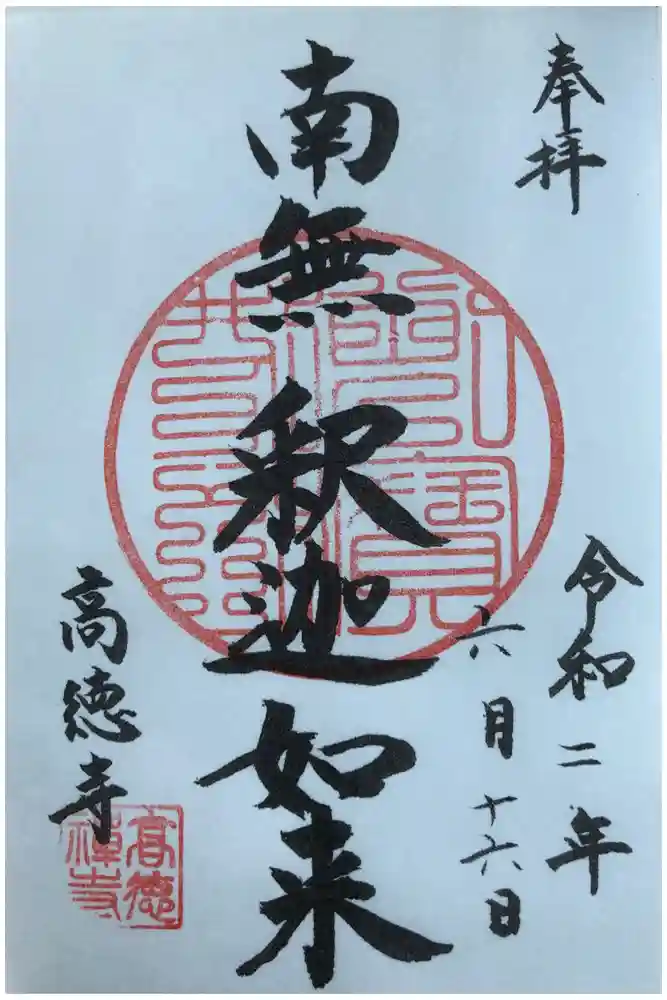 奉拝
令和二年
六月十六日
南無釈迦如来
高徳寺
高德
禅寺